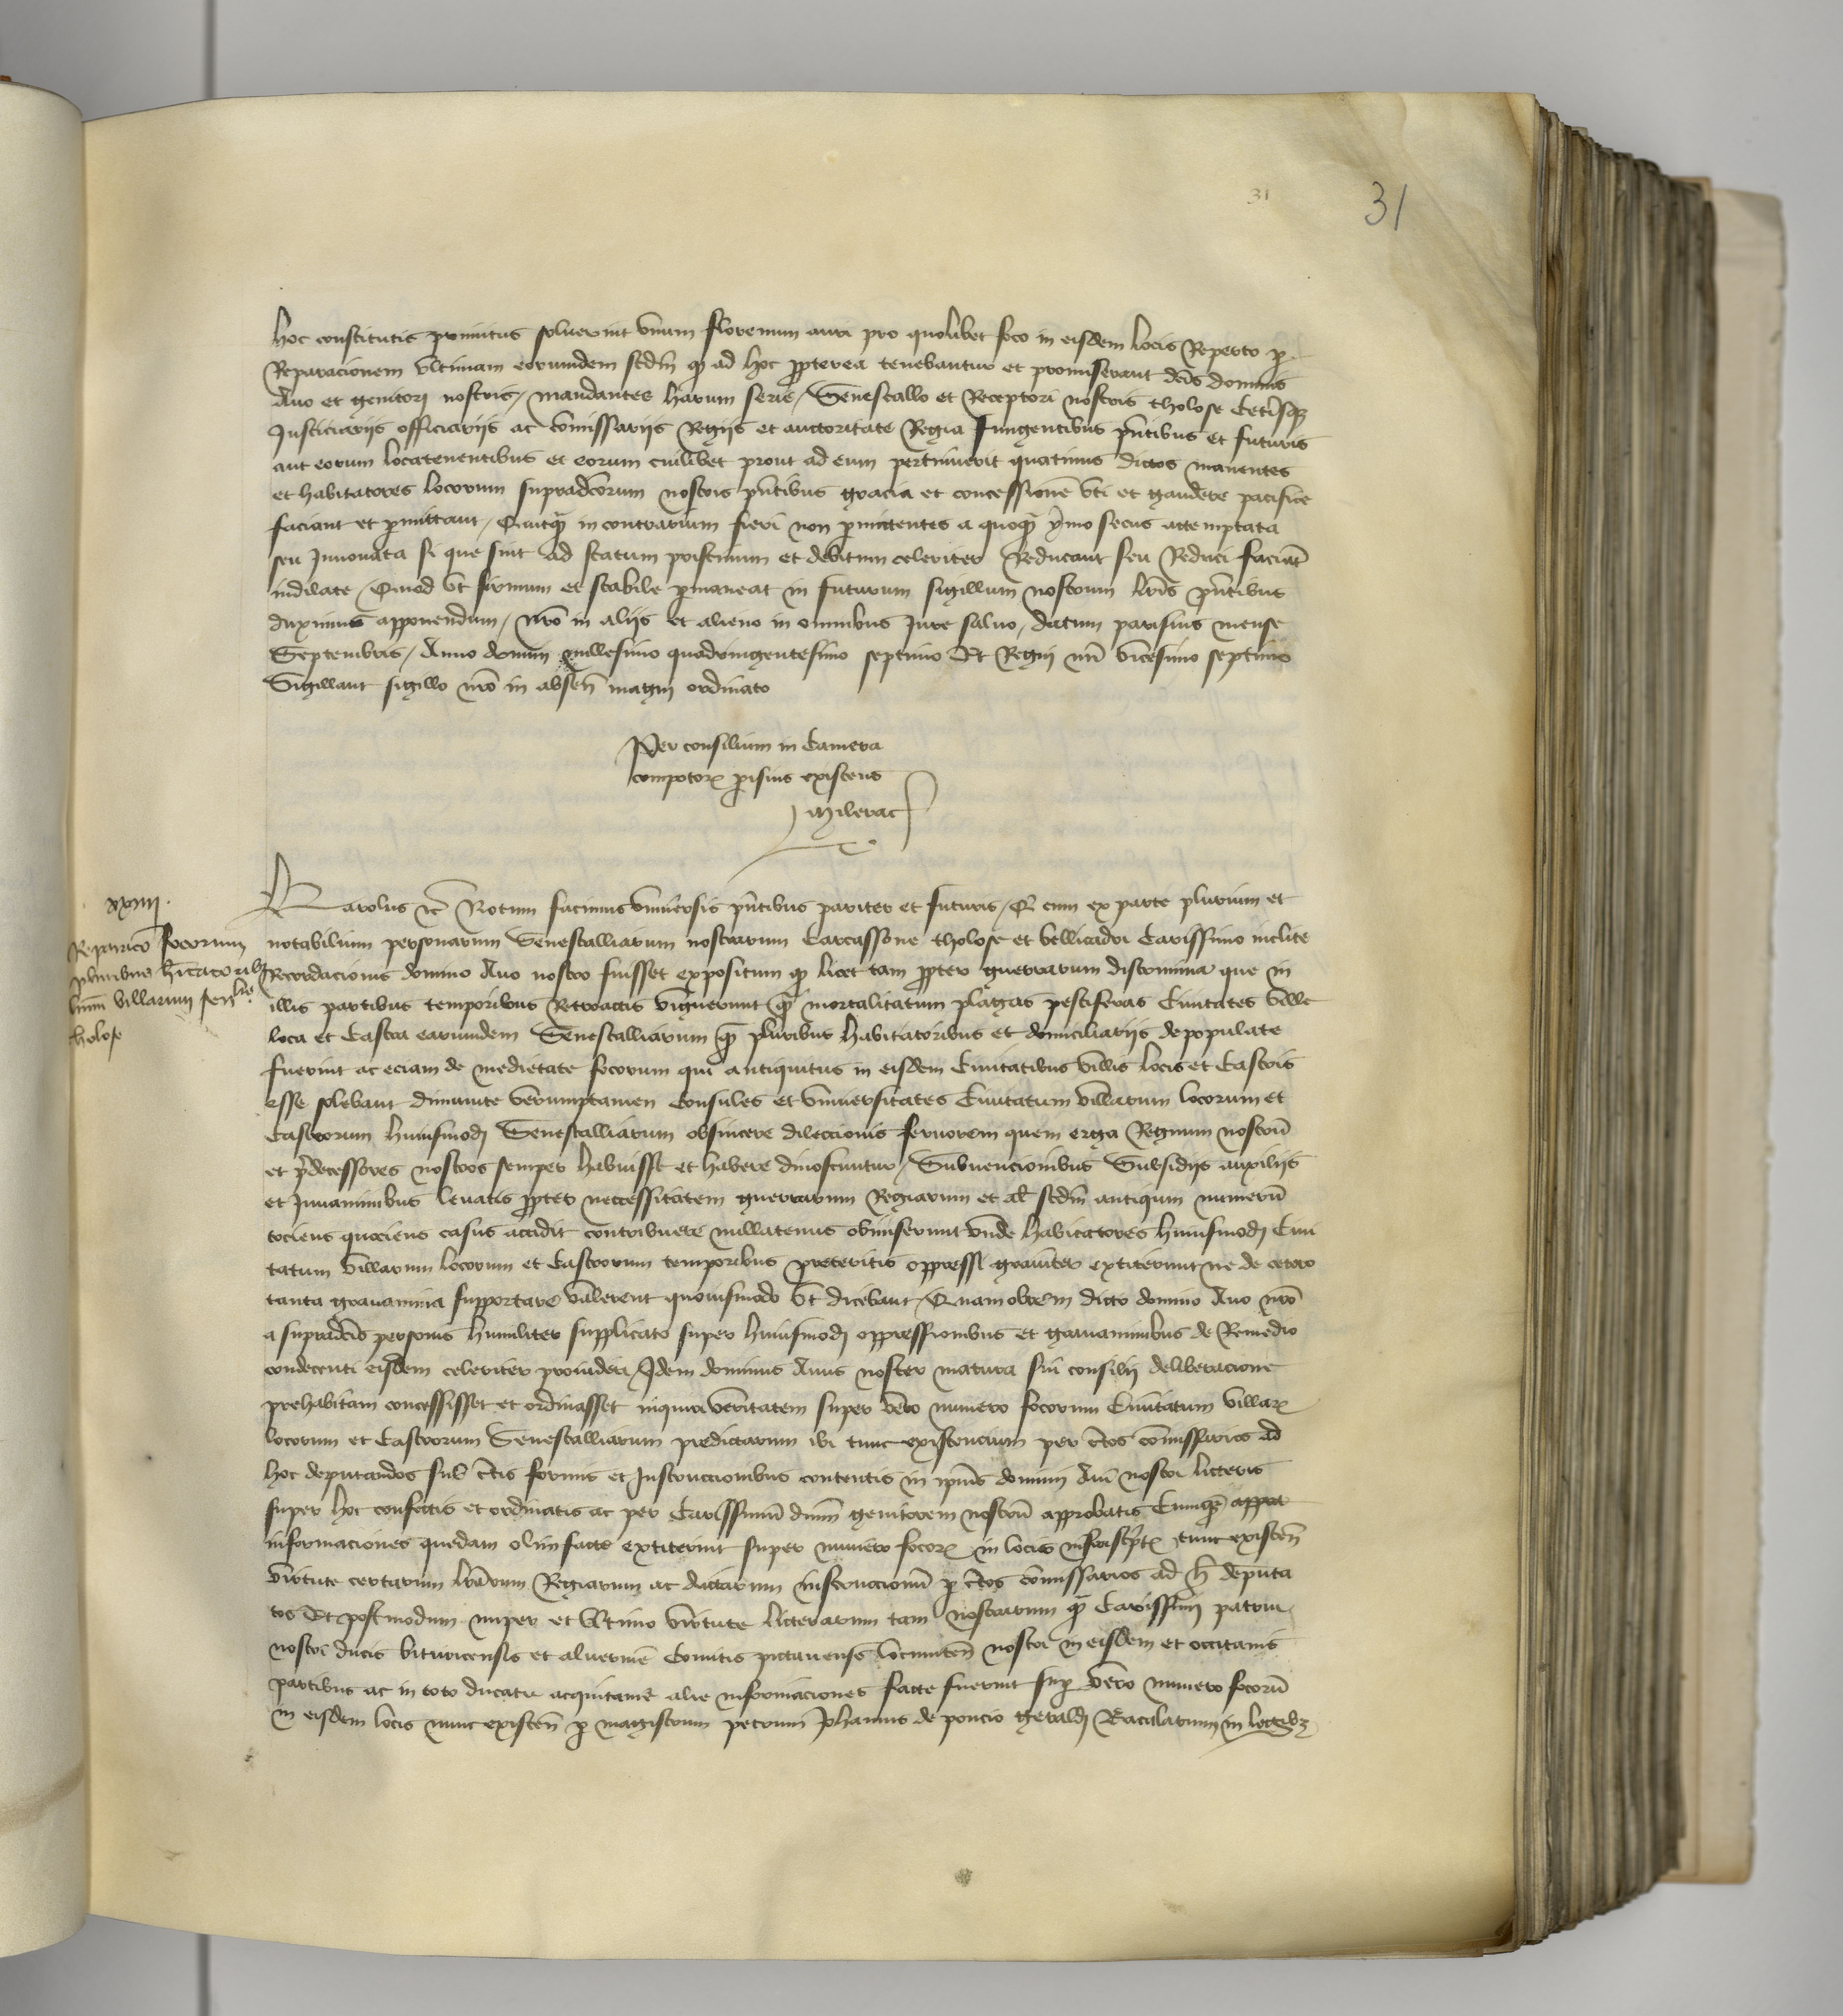 31
31
hoc constitutis primitus soluerint vnum florenum auri pro quolibet foco in eisdem locis Reperto p̱
Reparacionem vltimam eorumdem scd̄m qd̄ ad hoc p̱pterea tenebantur et promiserant dcīs dominis
Auo et genitori nostris / mandantes harum serie / Senescallo et Receptori nostris tholose Cetīsqz
Justiciarijs officiarijs ac Com̄issarijs Regijs et auctoritate Regia Fungentibus pn̄tibus et futuris
aut eorum locatenentibus et eorum cuilibet prout ad eum pertinuerit quatinus dictos manentes
et habitatores locorum supradcōrum nostris pn̄tibus gracia et concessione vti et gaudere pacifice
faciant et p̱mittant / Quicq̄ in contrarium fieri non p̱mittentes a quoq̄ ymo secus attemptata
seu Innouata si que sint ad statum pristinum et debitum celeriter Reducant seu Reduci faciāt
indilate / Quod vt firmum et stabile p̱maneat in futurum sigillum nostrum lrīs pn̄tibus
duximus apponendum / nrō in aliis et alieno in omnibus Jure saluo / datum parisius mense
Septembris / Anno domini millesimo quadringentesimo septimo Et Regni nrī vicesimo septimo
Sigillaut sigillo nrō in absen̄ magni ordinato
Per consilium in Camera
compotoꝝ p̱isius existens
Milerac
xxiiii.
Reparacō focorum
pluribus hītatorib
villarum senlīe
tholose
Karolus ec̄ Notum facimus vniuersis pn̄tibus pariter et futuris / Q cum ex parte plurium et
notabilium personarum Senescalliarum nostrarum Carcassone tholose et bellicadri Carissimo inclite
Recordacionis domino Auo nostro fuisset expositum qd̄ licet tam p̱pter guerrarum discrimina que in
illis partibus temporibus Retroactis viguerunt q̄ mortalitatum plagas pestiferas Ciuitates ville
loca et Castra earumdem Senescalliarum q̄ pluribus habitatoribus et domiciliariis depopulate
fuerint ac eciam de medietate focorum qui antiquitus in eisdem Ciuitatibus villis locis et Castris
esse solebant diminute verumptamen Consules et vniuersitates Ciuitatum villarum locorum et
Castrorum huiusmodi Senescalliarum obsincere dileccionis feruorem quem erga Regnum nostrū
et pr̄decessores nostros semper habuisse et habere dinoscuntur / Subuencionibus Subsidijs auxiliis
et Juuaminibus leuatis p̱pter necessitatem guerrarum Regiarum et al̄ scd̄m antiquum numerū
tociens quociens casus accidit contribuere nullatenus obmiserunt vnde habitatores huiusmodi Ciui
tatum villarum locorum et Castrorum temporibus preteritis oppressi grauiter extiterunt ne de cetero
tanta grauamina supportare valerent quouismodo vt dicebant / Quamobrem dicto domino Auo nrō
a supradcīs personis humiliter supplicato super huiusmodi oppressionibus et grauaminibus de Remedio
condecenti eisdem celeriter prouideri / Idem dominus Auus noster matura sui consilij deliberacione
prehabitam concessisset et ordinasset inquiri veritatem super vero numero focorum Ciuitatum villaꝝ
locorum et Castrorum Senescalliarum predictarum ibi tunc existencium per cr̄tos com̄issarios ad
hoc deputandos sub cr̄tis formis et Instruccionibus contentis in ip̄ius domini Aui nostri litteris
super hoc confectis et ordinatis ac per Carissimū dn̄m genitorem nostrū approbatis Cumq̄
informaciones quedam olim facte extiterint super numero focoꝝ in locis infrascriptꝭ tunc existen̄
virtute certarum lrārum Regiarum ac dictarum instruccionū p̱ cr̄tos com̄issarios ad h̄ deputa
tos Et postmodum nuper et vltimo virtute litterarum tam nostrarum q̄ Carissimi patrui
nostri ducis bituricensis et aluernie Comitis pictauens̄ locumten̄ nostri in eisdem et occitanis
partibus ac in toto ducatu acquitanie alie informaciones facte fuerint sup̱ vero numero focorū
in eisdem locis nunc existen̄ p̱ magistrum petrum Johannis de poncio geraldi Bacalarium in